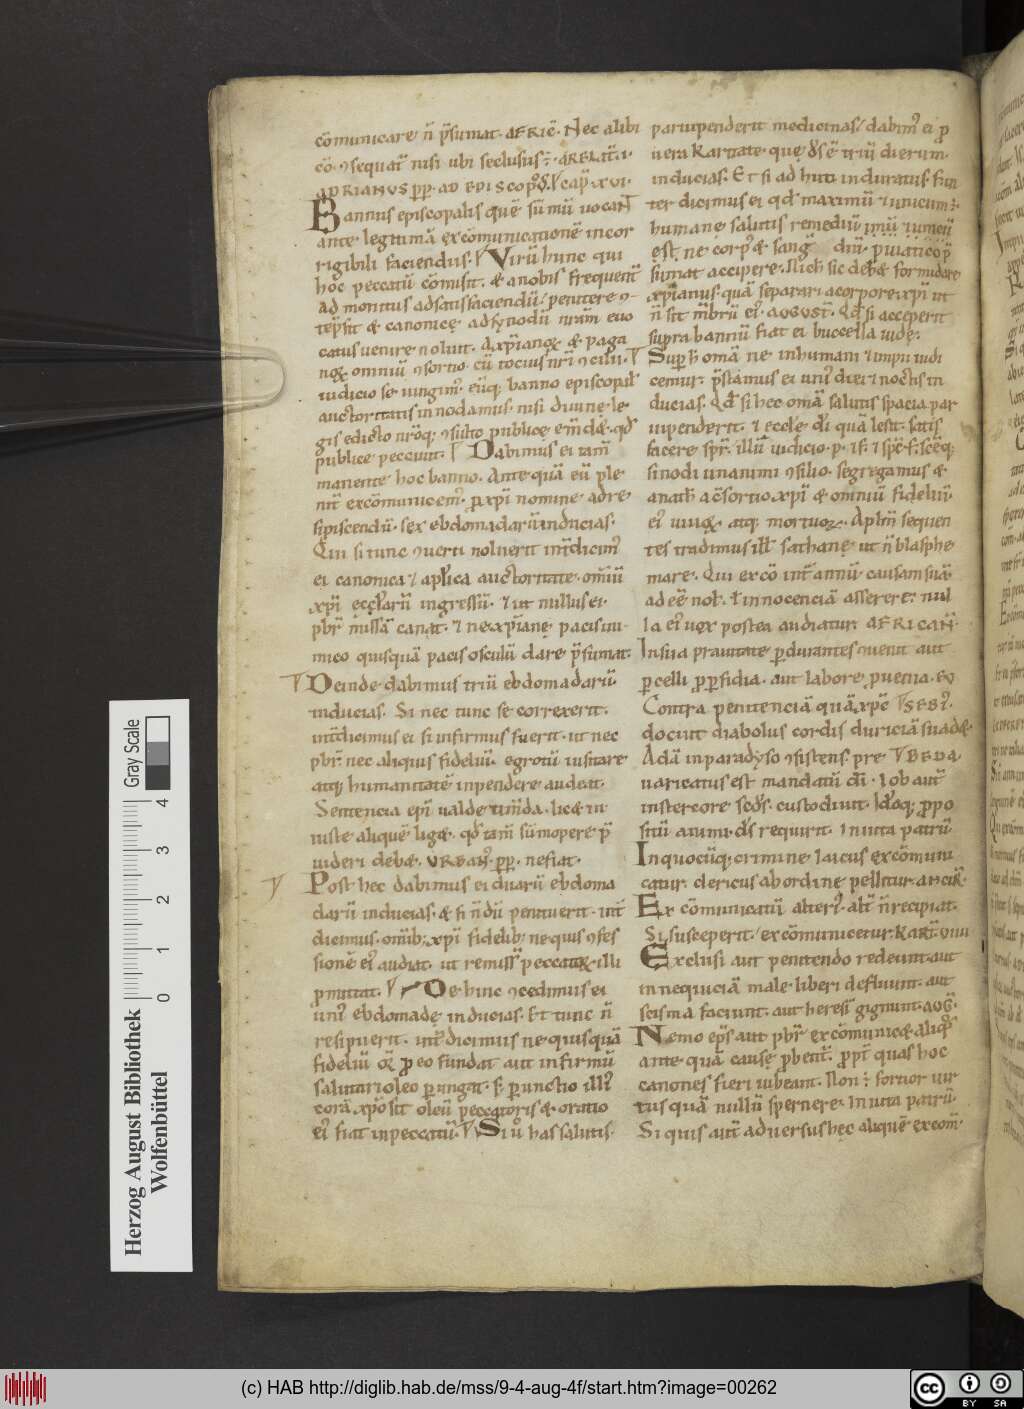 cōmunicare n̄ p̄sumat. AFRIC̄. Nec alibi
cō ꝯsequat̄ nisi ubi seclusus. ARELAT̄. I.
ADRIANUS PP. AD EPISCOPOS. cap̄. XVI.
Bannus episcopalis quē sūmū uocant
ante legitimā excōmunicationē incor
rigibili faciendus. Virū hunc qui
hoc peccatū cōmisit. & a nobis frequent̄
ad monitus ad satisfaciendū, penitere ꝯ
tēpsit & canonice ad synodū nr̄am euo
catus uenire noluit. A xp̄ianoꝝ & paga
noꝝ omniū ꝯsortio. cū tocius nr̄i ꝯcilii
iudicio seiungim̄. eūq; banno episcopal̄
auctoritatis innodamus. nisi diuine le
gis edicto nr̄oq; ꝯsulto publice em̄d&. qd̄
publice peccauit. Dabimus ei tam̄
manente hoc banno. Ante quā eū ple
nit̄ excōmunicem̄. p xp̄i nomine ad re
sipiscendū. sex ebdomadarū inducias.
Qui si tunc ꝯuerti noluerit int̄dicim̄
ei canonica & apl̄ica auctoritate. om̄iū
xp̄i eccl̄arū ingressū. & ut nullus ei
pbr̄ missā canat. & ne xp̄iane pacis ini
mico quisquā pacis osculū dare p̄sumat.
Deinde dabimus triū ebdomadarū
inducias. Si nec tunc se correxerit.
int̄dicimus ei si infirmus fuerit. ut nec
pbr̄. nec aliquis fideliū. egrotū uisitare
atq; humanitatē inpendere audeat.
Sentencia ep̄i ualde timēda. lic& in
iuste aliquē lig&. qd̄ tam̄ sūmopere p̄
uideri deb&. URBAN̄. PP. ne fiat.
Post hec dabimus ei duarū ebdoma
darū inducias. & si n̄dū penituerit. int̄
dicimus. omīb; xp̄i fidelib; ne quis ꝯfes
sionē ei audiat. ut remissā peccatoꝝ illi
pmittat. De hinc ꝯcedimus ei
uni ebdomade inducias. Et tunc n̄
resipuerit. int̄dicimus ne quisquā
fideliū or̄ p eo fundat aut infirmū
salutari oleo pungat. s; punctio illi
corā xp̄o sit oleū peccatoris & oratio
ei fiat in peccatū. Si u̇ has salutis
paruipenderit medicinas, dabim̄ ei p
uera karitate. que d̄s ē triū dierum
inducias. Et si ad huc induratus fuu
ter dicimus ei qd̄ maximū & unicum
humane salutis remediū
est. ne corp̄ & sang dn̄i. p uiatico p̄
sumat accipere. Nich̄ sic deb& formidare
xp̄ianus. quā separari a corpore xp̄i ut
n̄ sit mēbrū ei. AUGUST. Qd̄ si acceperit
supra bannū fiat ei buccella iude.
Sup h̄ omā ne inhumani & inpii iudi
cemur. p̄stamus ei uni diei & noctis in
ducias. Qd̄ si hec omā salutis spacia par
uipenderit. & eccl̄e dī quā lesit. satis
facere spr̄. illū iudicio. p. & f. & sp̄c. s. sc̄eq;
sinodi unanimi ꝯsilio. segregamus &
anath̄. a ꝯsortio xp̄i & omniū fidelium
ei uiuoꝝ atq; mortuoꝝ. Apl̄m sequen
tes tradimus ill̄ sathane ut n̄ blasphe
mare. Qui excō int̄ annū causam suā
ad eē nol̄. & innocenciā asserere. nul
la ei uox postea audiatur AFRICAN̄.
In sua prauitate pdurantes ꝯuenit aut
pcelli p pfidia. aut labore puenia.
Contra penitenciā quā xp̄c EUSEBI.
docuit diabolus cordis duriciā suad&.
Adā in paradyso ꝯsistens. pre BEDA
uaricatus est mandatū dī. Iob aut̄
in stercore sed̄s. custodiuit. Id̄oq; ppo
sitū animi d̄s requirit. In uita patrū
In quocūq; crimine laicus excōmuni
catur. clericus ab ordine pellitur. ANCIR̄.
Excōmunicatū alteri. alt̄ n̄ recipiat.
Si susceperit, excōmunicetur. KART̄. VIIII
Exclusi aut penitendo redeunt. aut
in nequiciā male liberi defluunt. aut
scisma faciunt. aut heresī gignunt. AUG̅.
Nemo ep̄s aut pbr̄ excōmunic& aliq̄s
ante quā cause pbent̄. pp̄t quas hoc
canones fieri iubeant. Non fortior uir
tus quā nullū spernere. In uita patrū
Si quis aut̄ aduersus hęc aliquē excom̄
Herzog August Bibliothek
Wolfenbüttel
Gray Scale
0 1 2 3 4
(c) HAB http://diglib.hab.de/mss/9-4-aug-4f/start.htm?image=00262
CC BY SA